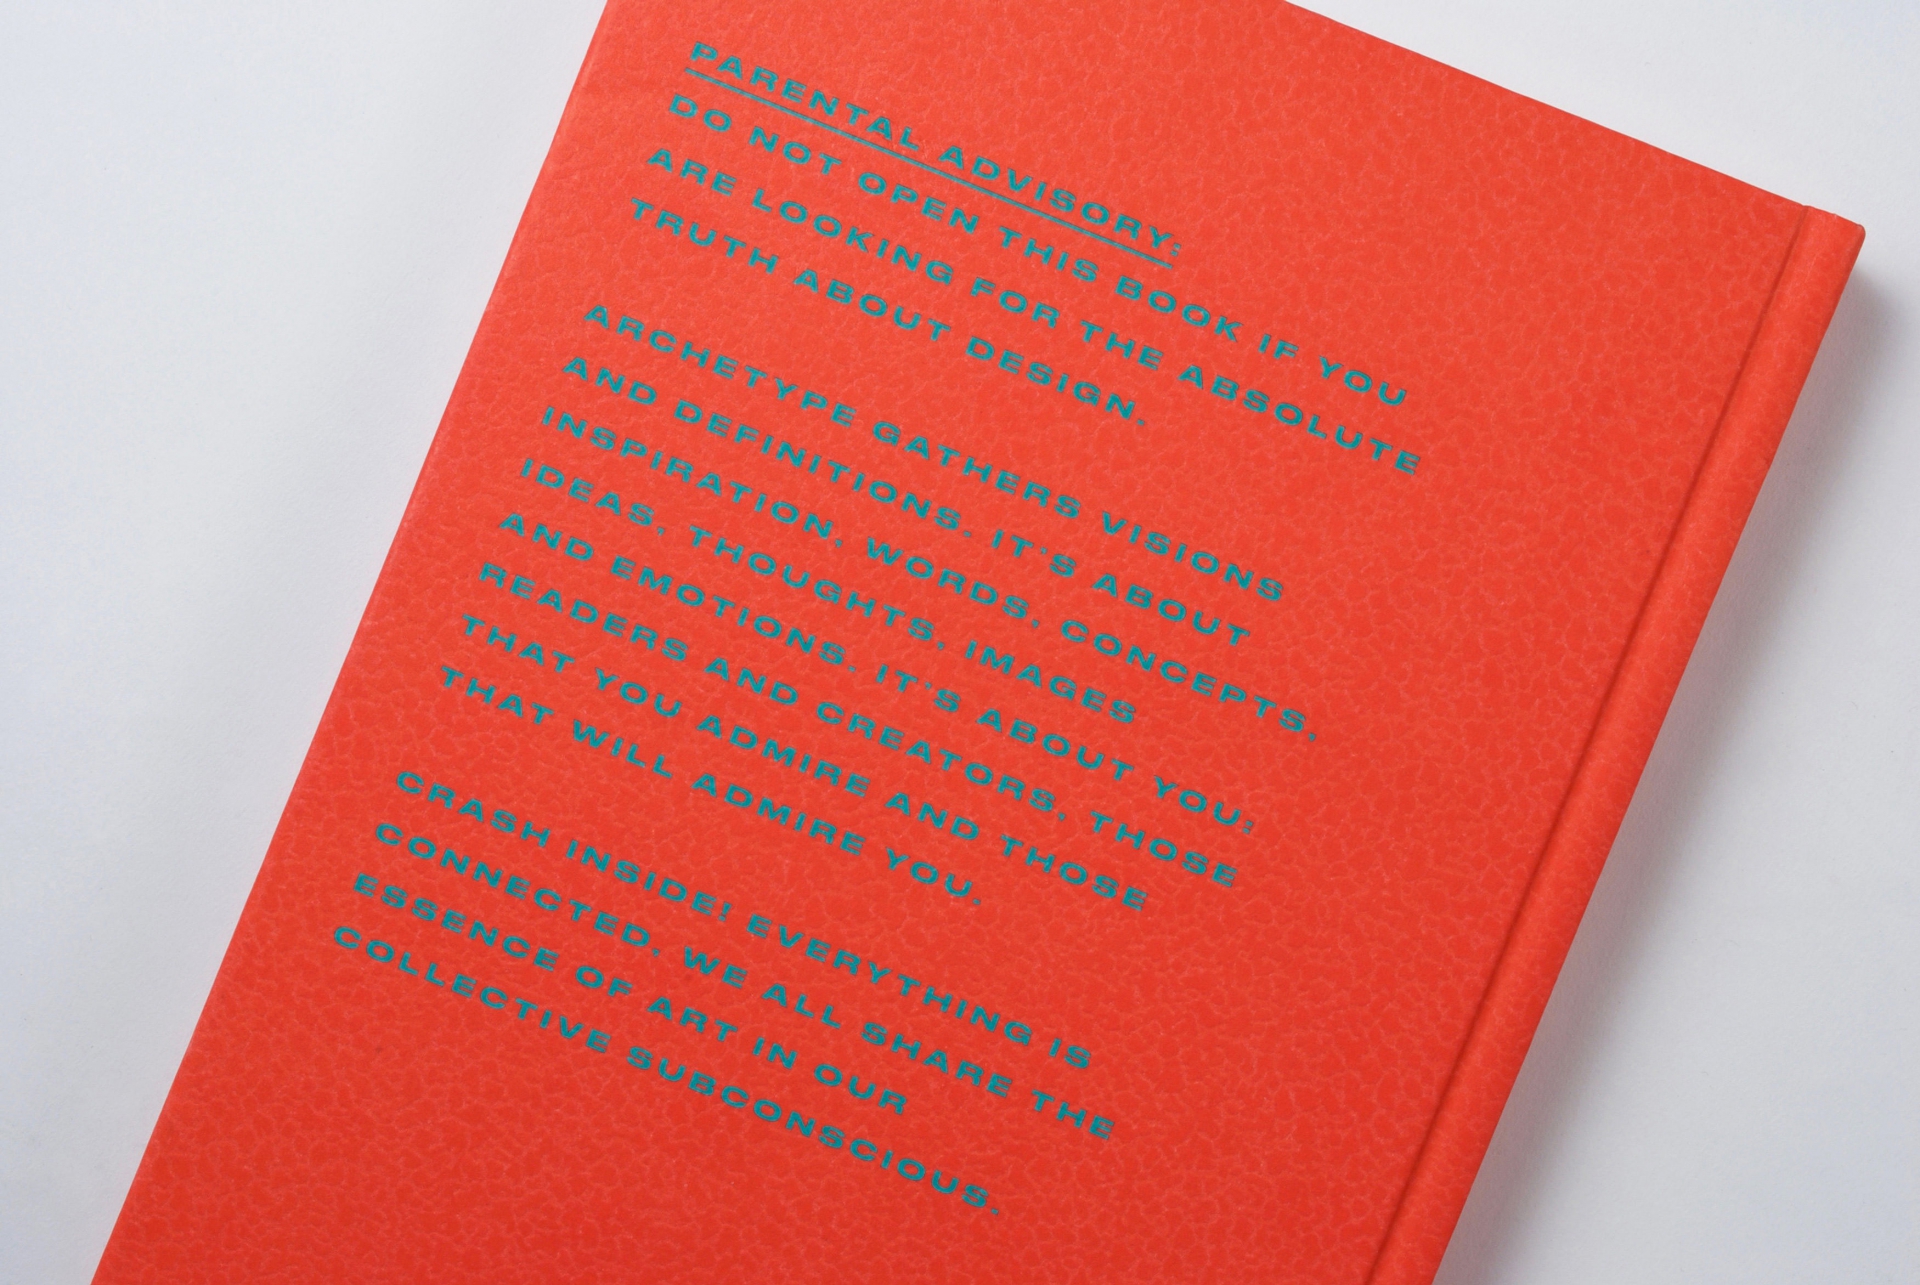 PARENTAL ADVISORY:
DO NOT OPEN THIS BOOK IF YOU
ARE LOOKING FOR THE ABSOLUTE
TRUTH ABOUT DESIGN.
ARCHETYPE GATHERS VISIONS
AND DEFINITIONS. IT'S ABOUT
INSPIRATION, WORDS, CONCEPTS,
IDEAS, THOUGHTS, IMAGES
AND EMOTIONS. IT'S ABOUT YOU:
READERS AND CREATORS, THOSE
THAT YOU ADMIRE AND THOSE
THAT WILL ADMIRE YOU.
CRASH INSIDE! EVERYTHING IS
CONNECTED, WE ALL SHARE THE
ESSENCE OF ART IN OUR
COLLECTIVE SUBCONSCIOUS.